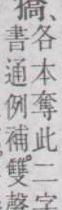 獢、各本奪此二字
書通例補。雙聲